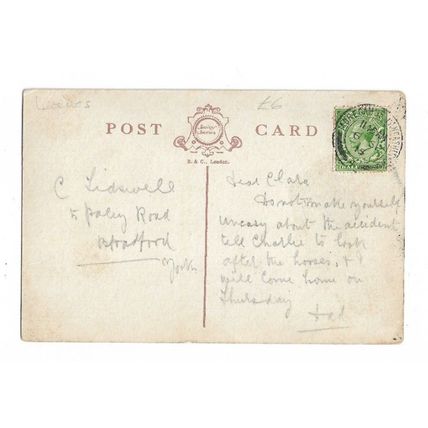 £6
POST CARD
B. & C., London.
C Lidswell
5 Paley Road
Bradford
Yorks
Dear Clara
Do not make yourself
uneasy about the accident
tell Charlie to look
after the horses, & I
will come home on
Thursday
Dad